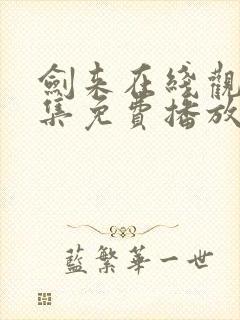 劍来在綫觀
集免費播放
藍繁華一世